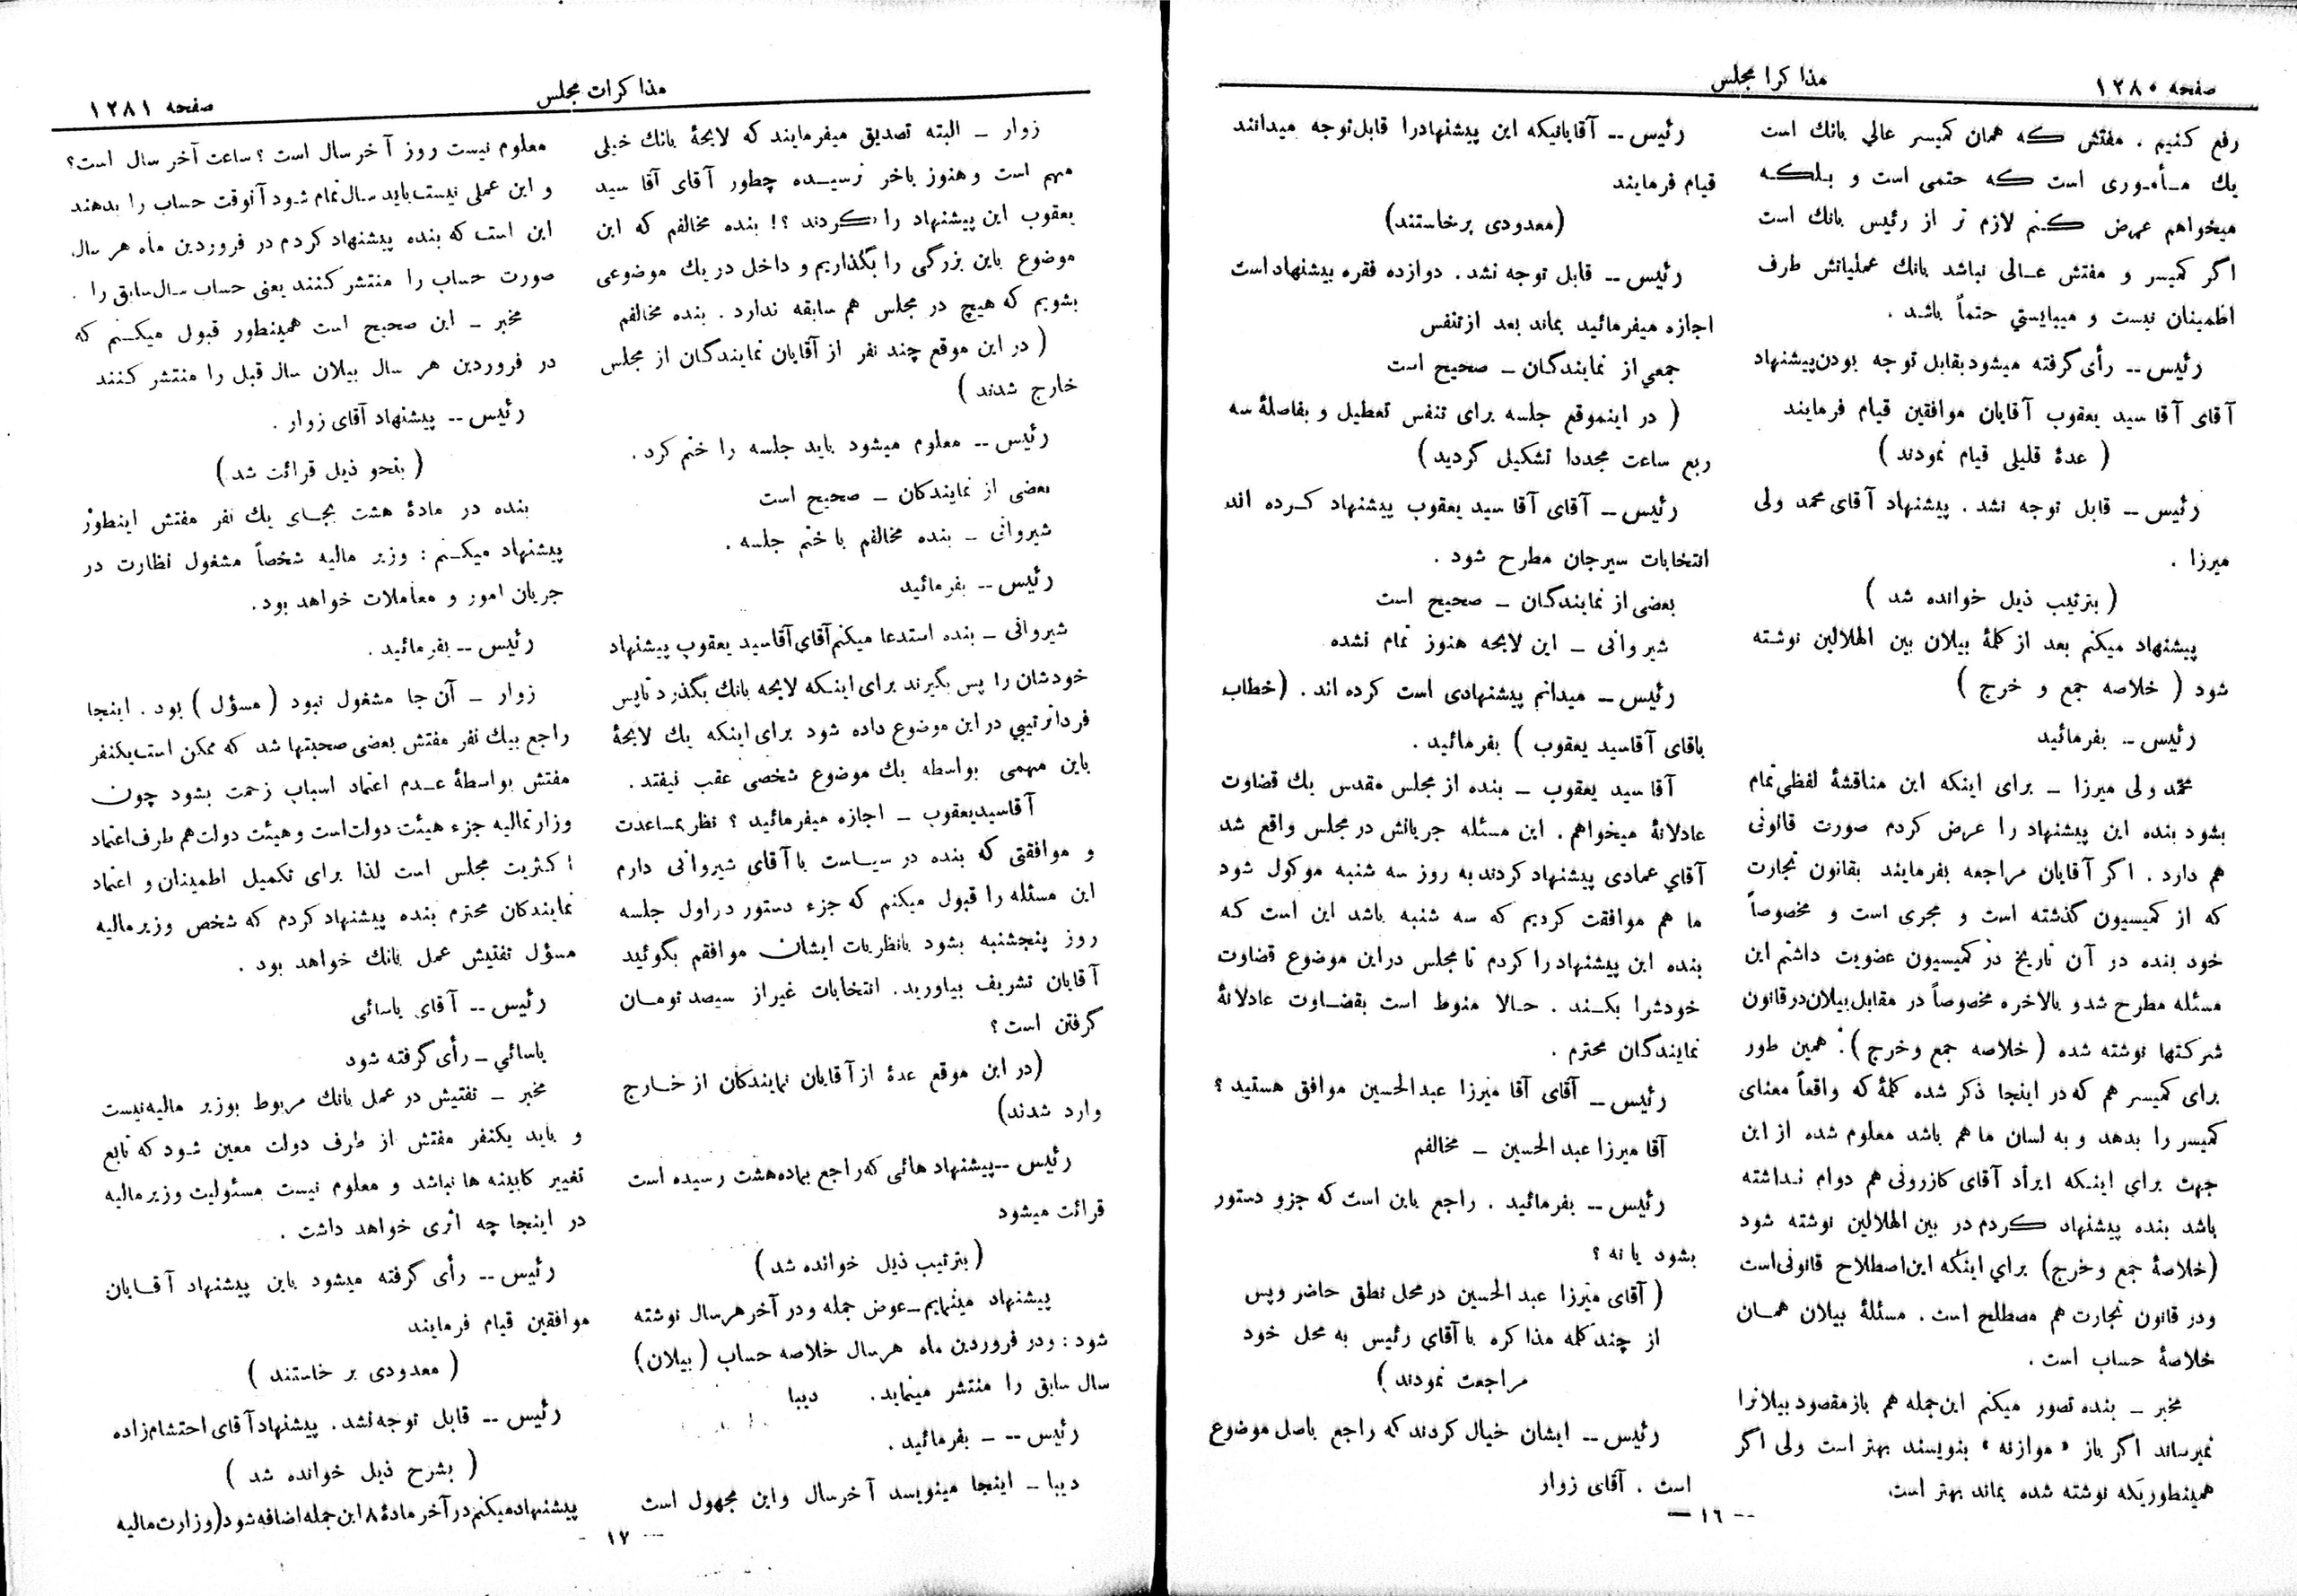 صفحه ۱۲۸۰
مذاکرا مجلس
رفع کنیم . مفتش که همان کمیسر عالی بانك است
یك مأموری است که حتمی است و بلکه
میخواهم عرض کنم لازم تر از رئیس بانك است
اگر کمیسر و مفتش عالی نباشد بانك عملیاتش طرف
اطمینان نیست و میبایستی حتماً باشد .
رئیس -- رأی گرفته میشود بقابل توجه بودن پیشنهاد
آقای آقا سید یعقوب آقایان موافقین قیام فرمایند
( عدهٔ قلیلی قیام نمودند )
رئیس -- قابل توجه نشد . پیشنهاد آقای محمد ولی
میرزا .
( بترتیب ذیل خوانده شد )
پیشنهاد میکنم بعد از کلمهٔ بیلان بین الهلالین نوشته
شود ( خلاصه جمع و خرج )
رئیس -- بفرمائید
محمد ولی میرزا - برای اینکه این مناقشهٔ لفظی تمام
بشود بنده این پیشنهاد را عرض کردم صورت قانونی
هم دارد . اگر آقایان مراجعه بفرمایند بقانون تجارت
که از کمیسیون گذشته است و مجری است و مخصوصاً
خود بنده در آن تاریخ در کمیسیون عضویت داشتم این
مسئله مطرح شد و بالاخره مخصوصاً در مقابل بیلان در قانون
شرکتها نوشته شده ( خلاصه جمع و خرج ) . همین طور
برای کمیسر هم که در اینجا ذکر شده کلمهٔ که واقعاً معنای
کمیسر را بدهد و به لسان ما هم باشد معلوم شده از این
جهت برای اینکه ایراد آقای کازرونی هم دوام نداشته
باشد بنده پیشنهاد کردم در بین الهلالین نوشته شود
(خلاصهٔ جمع و خرج) برای اینکه این اصطلاح قانونی است
و در قانون تجارت هم مصطلح است . مسئلهٔ بیلان همان
خلاصهٔ حساب است .
مخبر - بنده تصور میکنم این جمله هم باز مقصود بیلانرا
نمیرساند اگر باز « موازنه » بنویسند بهتر است ولی اگر
همینطوریکه نوشته شده بماند بهتر است
رئیس -- آقایانیکه این پیشنهادرا قابل توجه میدانند
قیام فرمایند
(معدودی برخاستند)
رئیس -- قابل توجه نشد . دوازده فقره پیشنهاد است
اجازه میفرمائید بماند بعد از تنفس
جمعی از نمایندگان - صحیح است
( در اینموقع جلسه برای تنفس تعطیل و بفاصلهٔ سه
ربع ساعت مجددا تشکیل گردید )
رئیس -- آقای آقا سید یعقوب پیشنهاد کرده اند
انتخابات سیرجان مطرح شود .
بعضی از نمایندگان - صحیح است
شیروانی - این لایحه هنوز تمام نشده
رئیس - میدانم پیشنهادی است کرده اند . (خطاب
باقای آقاسید یعقوب ) بفرمائید .
آقا سید یعقوب - بنده از مجلس مقدس یك قضاوت
عادلانهٔ میخواهم . این مسئله جریانش در مجلس واقع شد
آقای عمادی پیشنهاد کردند به روز سه شنبه موکول شود
ما هم موافقت کردیم که سه شنبه باشد این است که
بنده این پیشنهاد را کردم تا مجلس در این موضوع قضاوت
خودشرا بکند . حالا منوط است بقضاوت عادلانهٔ
نمایندگان محترم .
رئیس - آقای آقا میرزا عبدالحسین موافق هستید ؟
آقا میرزا عبدالحسین - مخالفم
رئیس -- بفرمائید . راجع باین است که جزو دستور
بشود یا نه ؟
( آقای میرزا عبدالحسین در محل نطق حاضر و پس
از چند کلمه مذاکره با آقای رئیس به محل خود
مراجعت نمودند )
رئیس -- ایشان خیال کردند که راجع باصل موضوع
است . آقای زوار
-- ۱٦ --
مذاکرات مجلس
صفحه ۱۲۸۱
زوار - البته تصدیق میفرمایند که لایحهٔ بانك خیلی
مهم است و هنوز باخر نرسیده چطور آقای آقا سید
یعقوب این پیشنهاد را کردند ؟! بنده مخالفم که این
موضوع باین بزرگی را بگذاریم و داخل در یك موضوعی
بشویم که هیچ در مجلس هم سابقه ندارد . بنده مخالفم
( در این موقع چند نفر از آقایان نمایندگان از مجلس
خارج شدند )
رئیس -- معلوم میشود باید جلسه را ختم کرد .
بعضی از نمایندکان - صحیح است
شیروانی - بنده مخالفم با ختم جلسه .
رئیس -- بفرمائید
شیروانی - بنده استدعا میکنم آقای آقاسید یعقوب پیشنهاد
خودشان را پس بگیرند برای اینکه لایحه بانك بگذرد تا پس
فردا ترتیبی در این موضوع داده شود برای اینکه یك لایحهٔ
باین مهمی بواسطه یك موضوع شخصی عقب نیفتد .
آقاسیدیعقوب - اجازه میفرمائید ؟ نظر بمساعدت
و موافقتی که بنده در سیاست با آقای شیروانی دارم
این مسئله را قبول میکنم که جزء دستور در اول جلسه
روز پنجشنبه بشود بانظریات ایشان موافقم بگوئید
آقایان تشریف بیاورید . انتخابات غیر از سیصد تومان
گرفتن است ؟
(در این موقع عدهٔ از آقایان نمایندکان از خارج
وارد شدند)
رئیس -- پیشنهاد هائی که راجع بماده هشت رسیده است
قرائت میشود
( بترتیب ذیل خوانده شد )
پیشنهاد مینمایم - عوض جمله و در آخر هر سال نوشته
شود : و در فروردین ماه هرسال خلاصه حساب ( بیلان )
سال سابق را منتشر مینماید . دیبا
رئیس -- - بفرمائید .
دیبا - اینجا مینویسد آخر سال و این مجهول است
معلوم نیست روز آخر سال است ؟ ساعت آخر سال است ؟
و این عملی نیست باید سال تمام شود آنوقت حساب را بدهند
این است که بنده پیشنهاد کردم در فروردین ماه هر سال
صورت حساب را منتشر کنند یعنی حساب سال سابق را .
مخبر - این صحیح است همینطور قبول میکنم که
در فروردین هر سال بیلان سال قبل را منتشر کنند
رئیس -- پیشنهاد آقای زوار .
( بنحو ذیل قرائت شد )
بنده در مادهٔ هشت بجای یك نفر مفتش اینطور
پیشنهاد میکنم : وزیر مالیه شخصاً مشغول نظارت در
جریان امور و معاملات خواهد بود .
رئیس -- بفرمائید .
زوار - آن جا مشغول نبود ( مسؤل ) بود . اینجا
راجع بیك نفر مفتش بعضی صحبتها شد که ممکن است یکنفر
مفتش بواسطهٔ عدم اعتماد اسباب زحمت بشود چون
وزارتمالیه جزء هیئت دولت است و هیئت دولت هم طرف اعتماد
اکثریت مجلس است لذا برای تکمیل اطمینان و اعتماد
نمایندکان محترم بنده پیشنهاد کردم که شخص وزیر مالیه
مسؤل تفتیش عمل بانك خواهد بود .
رئیس -- آقای یاسائی
یاسائی - رأی گرفته شود
مخبر - تفتیش در عمل بانك مربوط بوزیر مالیه نیست
و باید یکنفر مفتش از طرف دولت معین شود که تابع
تغییر کابینه ها نباشد و معلوم نیست مسئولیت وزیر مالیه
در اینجا چه اثری خواهد داشت .
رئیس -- رأی گرفته میشود باین پیشنهاد آقایان
موافقین قیام فرمایند
( معدودی بر خاستند )
رئیس -- قابل توجه نشد . پیشنهاد آقای احتشام زاده
( بشرح ذیل خوانده شد )
پیشنهاد میکنم در آخر مادهٔ ۸ این جمله اضافه شود ( وزارت مالیه
-- ۱۷ -